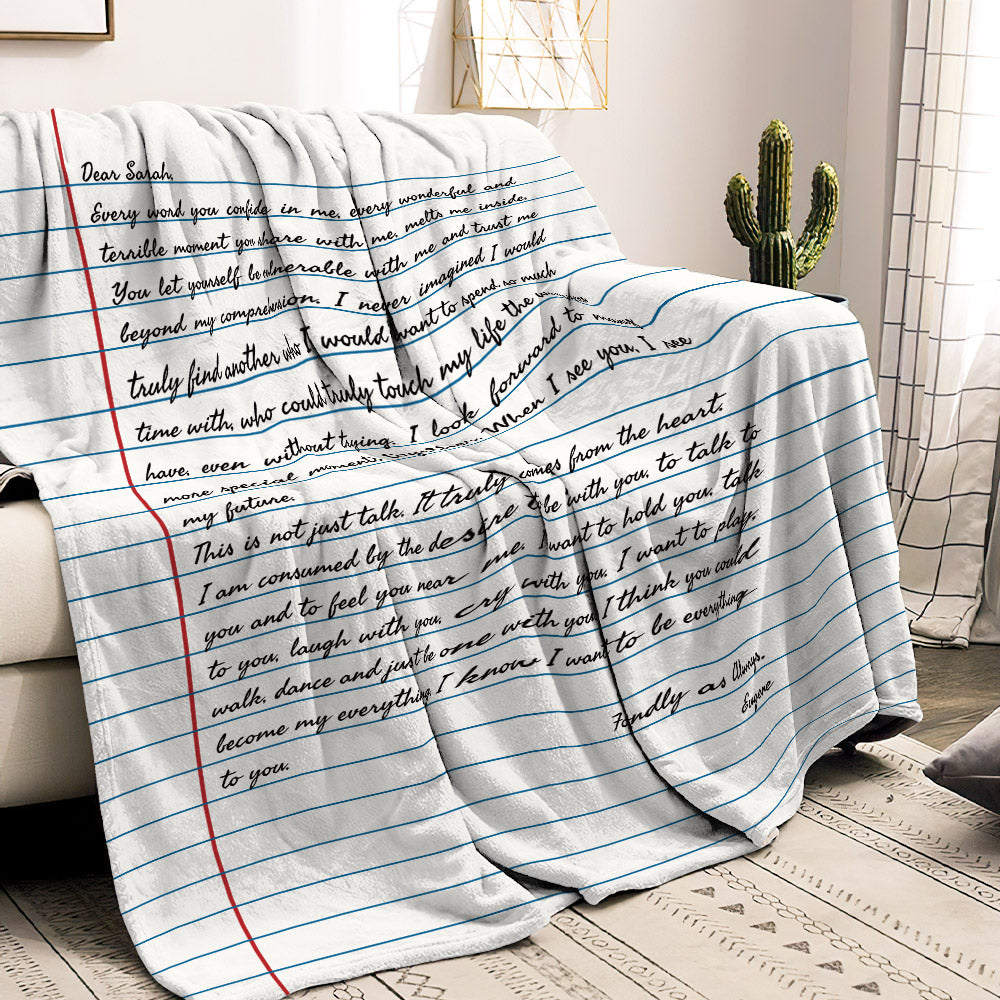 Dear Sarah,
Every word you confide in me, every wonderful and
terrible moment you share with me, melts me inside.
You let yourself be vulnerable with me and trust me
beyond my comprehension. I never imagined I would
truly find another who I would want to spend so much
time with, who could truly touch my life the
have, even without trying. I look forward to
more special moments When I see you, I see
my future.
This is not just talk. It truly comes from the heart.
I am consumed by the desire to be with you, to talk to
you and to feel you near me. I want to hold you, talk
to you, laugh with you, cry with you. I want to play,
walk, dance and just be one with you. I think you could
become my everything. I know I want to be everything
to you.
Fondly as Always,
Eugene